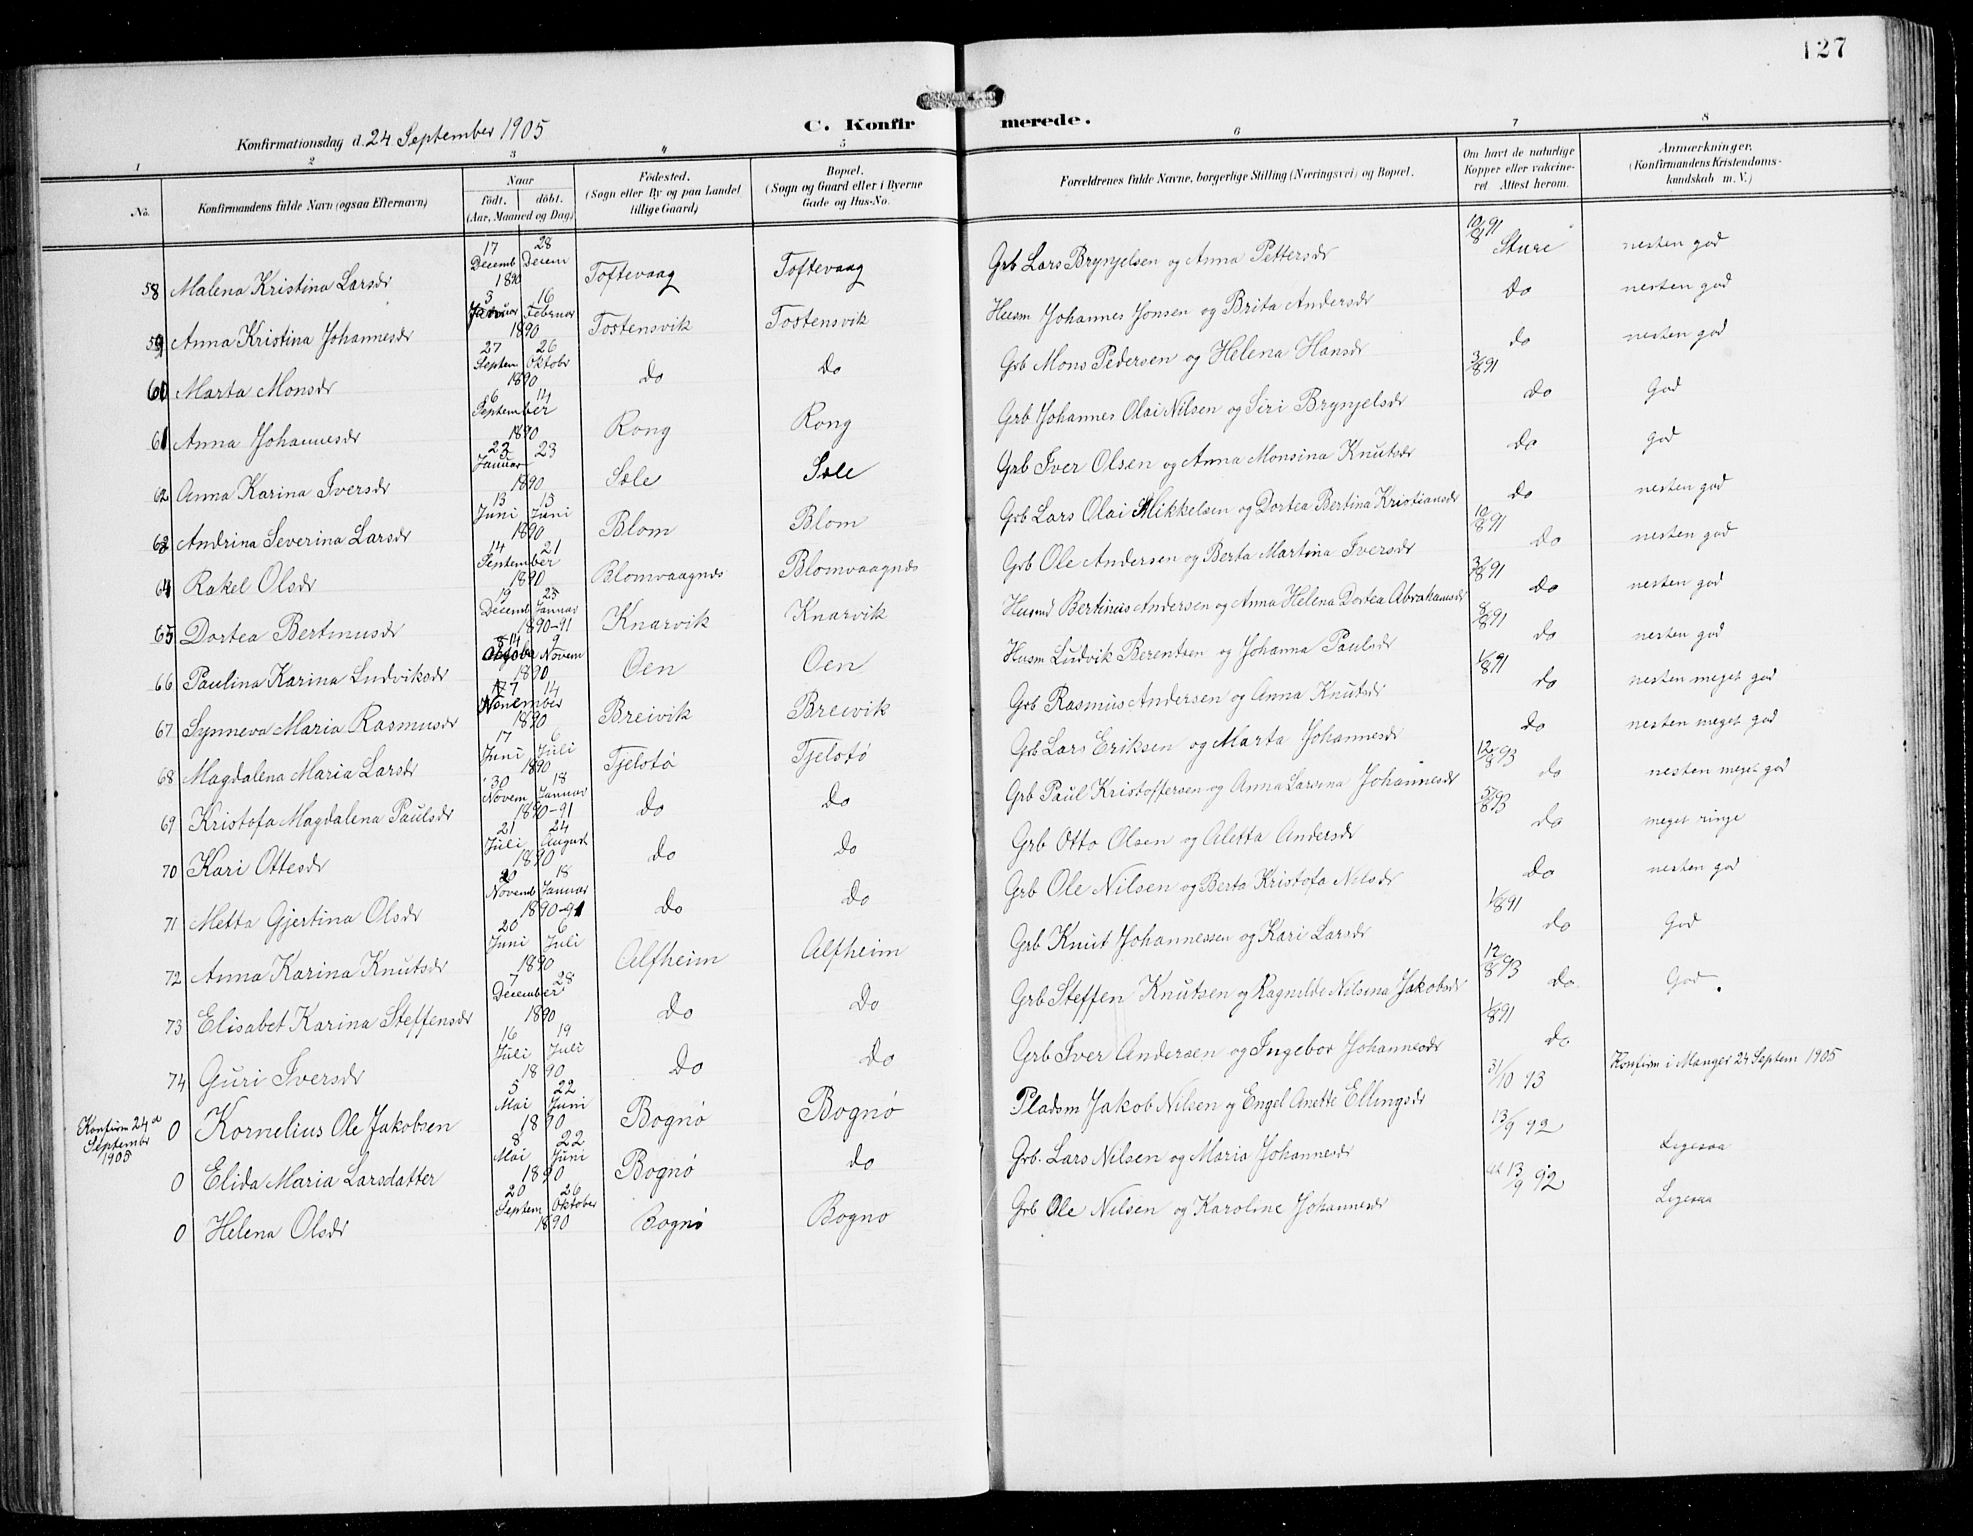 127
C. Konfirmerede.
Konfirmationsdag d. 24 September 1905
1 2 3 4 5 6 7 8
No.
Konfirmandens fulde Navn (ogsaa Efternavn)
Naar
födt. döbt.
(Aar, Maaned og Dag)
Födested.
(Sogn eller By og paa Landet
tillige Gaard)
Bopæl.
(Sogn og Gaard eller i Byerne
Gade og Hus-No.
Forældrenes fulde Navne, borgerlige Stilling (Næringsvei) og Bopæl.
Om havt de naturlige
Kopper eller vakcine-
ret. Attest herom.
Anmærkninger.
(Konfirmandens Kristendoms-
kundskab m. V.)
58 Malena Kristina Larsdr 17 Decemb 28 Decem 1890 Toftevaag Toftevaag Grb Lars Brynjelsen og Anna Pettersdr 10/8 91 Sture nesten god
59 Anna Kristina Johannesdr 3 Januar 16 Februar 1890 Tostensvik Tostensvik Husm Johannes Jonsen og Brita Andersdr do nesten god
60 Marta Monsdr 27 Septem 26 Oktobr 1890 do do Grb Mons Pedersen og Helena Hansdr do nesten god
61 Anna Johannesdr 6 14 September 1890 Rong Rong Grb Johannes Olai Nilsen og Siri Brynjelsdr 3/8 91 do God
62 Anna Karina Iversdr 23 Januar 23 1890 Sæle Sæle Grb Iver Olsen og Anna Monsina Knutsdr do god
63 Andrina Severina Larsdr 13 Juni 13 Juni 1890 Blom Blom Grb Lars Olai Mikkelsen og Dortea Bertina Kristiansdr do nesten god
64 Rakel Olsdr 14 21 September 1890 Blomvaagnes Blomvaagnes Grb Ole Andersen og Berta Martina Iversdr 10/8 91 do nesten god
65 Dortea Bertinusdr 19 Decemb 25 Januar 1890-91 Knarvik Knarvik Husmd Bertinus Andersen og Anna Helena Dortea Abrahamsdr 3/8 91 do nesten god
66 Paulina Karina Ludviksdr 14 9 Novem 1890 Oen Oen Husm Ludvik Berentsen og Johanna Paulsdr 8/8 91 do nesten god
67 Synneva Maria Rasmusdr 7 14 November 1890 Breivik Breivik Grb Rasmus Andersen og Anna Knutsdr 1/8 91 do nesten meget god
68 Magdalena Maria Larsdr 17 Juni 6 Juli 1890 Tjelstø Tjelstø Grb Lars Eriksen og Marta Johannesdr do nesten meget god
69 Kristofa Magdalena Paulsdr 30 Novem 18 Januar 1890-91 do do Grb Paul Kristoffersen og Anna Larsina Johannesdr 12/8 93 do nesten meget god
70 Kari Ottesdr 21 Juli 24 August 1890 do do Grb Otto Olsen og Aletta Andersdr 8 93 do meget ringe
71 Metta Gjertina Olsdr 20 Novemb 18 Januar 1890-91 do do Grb Ole Nilsen og Berta Kristofa Nilsdr do nesten god
72 Anna Karina Knutsdr 20 Juni 6 Juli 1890 Alfheim Alfheim Grb Knut Johannessen og Kari Larsdr 1/8 91 do God
73 Elisabet Karina Steffensdr 7 28 December 1890 do do Grb Steffen Knutsen og Ragnilde Nilsina Jakobsdr 12/8 93 do God
74 Guri Iversdr 16 Juli 19 Juli 1890 do do Grb Iver Andersen og Ingebor Johannesdr 1/8 91 do
Konfirm 24de Septembr 1905 0 Kornelius Ole Jakobsen 5 Mai 22 Juni 1890 Bognø Bognø Pladsm Jakob Nilsen og Engel Anette Ellingsdr 31/10 93 Konfirm i Manger 24 Septem 1905
0 Elida Maria Larsdatter 8 Mai 22 Juni 1890 Bognø do Grb. Lars Nilsen og Maria Johannesdr 13/9 92 Ligesaa
0 Helena Olsdr 20 Septem 26 Oktober 1890 Bognø Bognø Grb Ole Nilsen og Karoline Johannesdr 13/9 92 Ligesaa